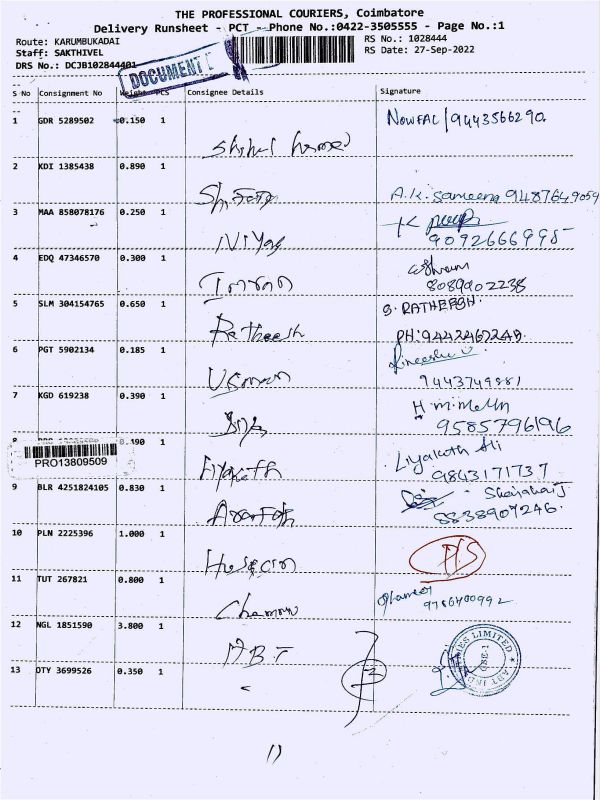 THE PROFESSIONAL COURIERS, Coimbatore
Delivery Runsheet - PCT - Phone No.:0422-3505555 - Page No.:1
Route: KARUMBUKADAI
RS No.: 1028444
Staff: SAKTHIVEL
RS Date: 27-Sep-2022
DRS No.: DCJB102844401
DOCUMENT
S No Consignment No Weight PCS Consignee Details Signature
1 GDR 5289502 0.150 1 NowFAL/9443566290
2 KDI 1385438 0.890 1 A.K. Sameena 9487649059
3 MAA 858078176 0.250 1 Niyas 9092666995
4 EDQ 47346570 0.300 1 Imran 8089902238
5 SLM 304154765 0.650 1 Ratheesh S. RATHEESH.
PH:9442467248
6 PGT 5902134 0.185 1 Usman
9443749881
7 KGD 619238 0.390 1
9585796196
8 0.190 1 Liyakath Ali
PRO13809509
9843171737
9 BLR 4251824105 0.830 1
8838907246.
10 PLN 2225396 1.000 1 Hussain
11 TUT 267821 0.800 1
9786400992
12 NGL 1851590 3.800 1 ABT
ABT INDUSTRIES LIMITED
CBE-1
13 OTY 3699526 0.350 1